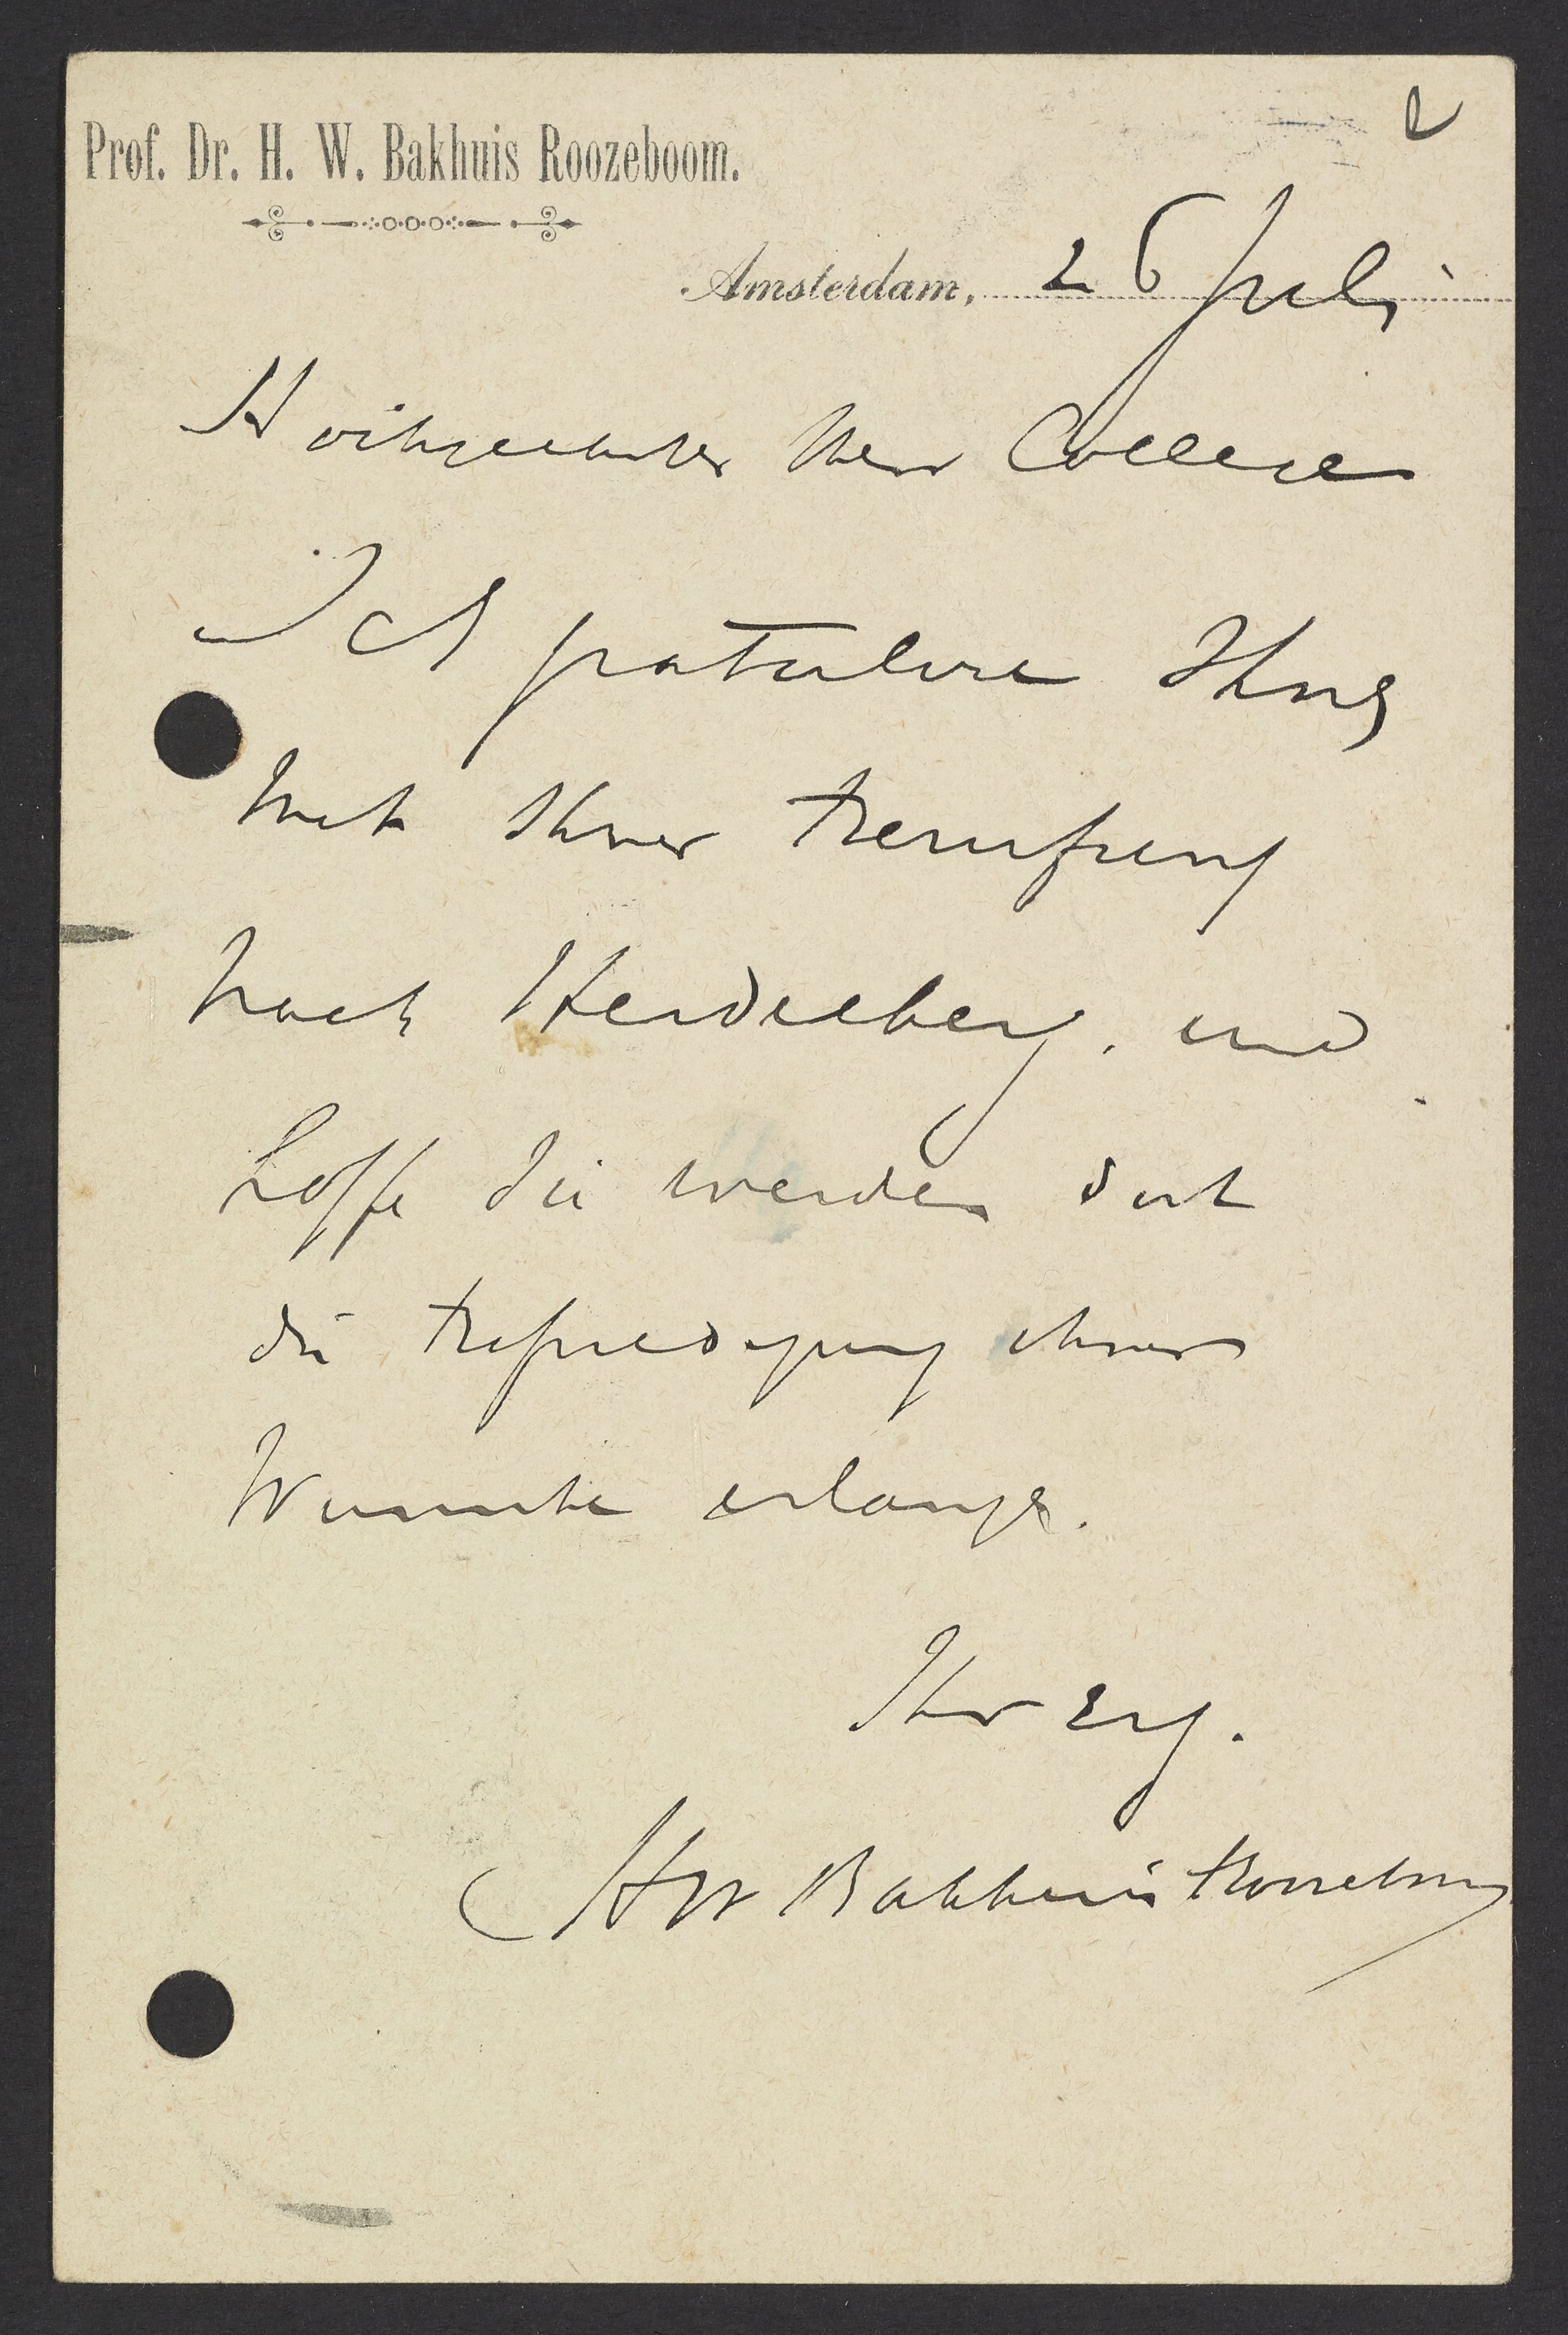 Prof. Dr. H. W. Bakhuis Roozeboom.
Amsterdam, 26 Juli
Hochgeehrter Herr College
Ich gratulire Ihnen
mit Ihrer Berufung
nach Heidelberg, und
hoffe Sie werden dort
die Befriedigung ihrer
Wunsche erlangen.
Ihr erg.
HW Bakhuis Roozeboom